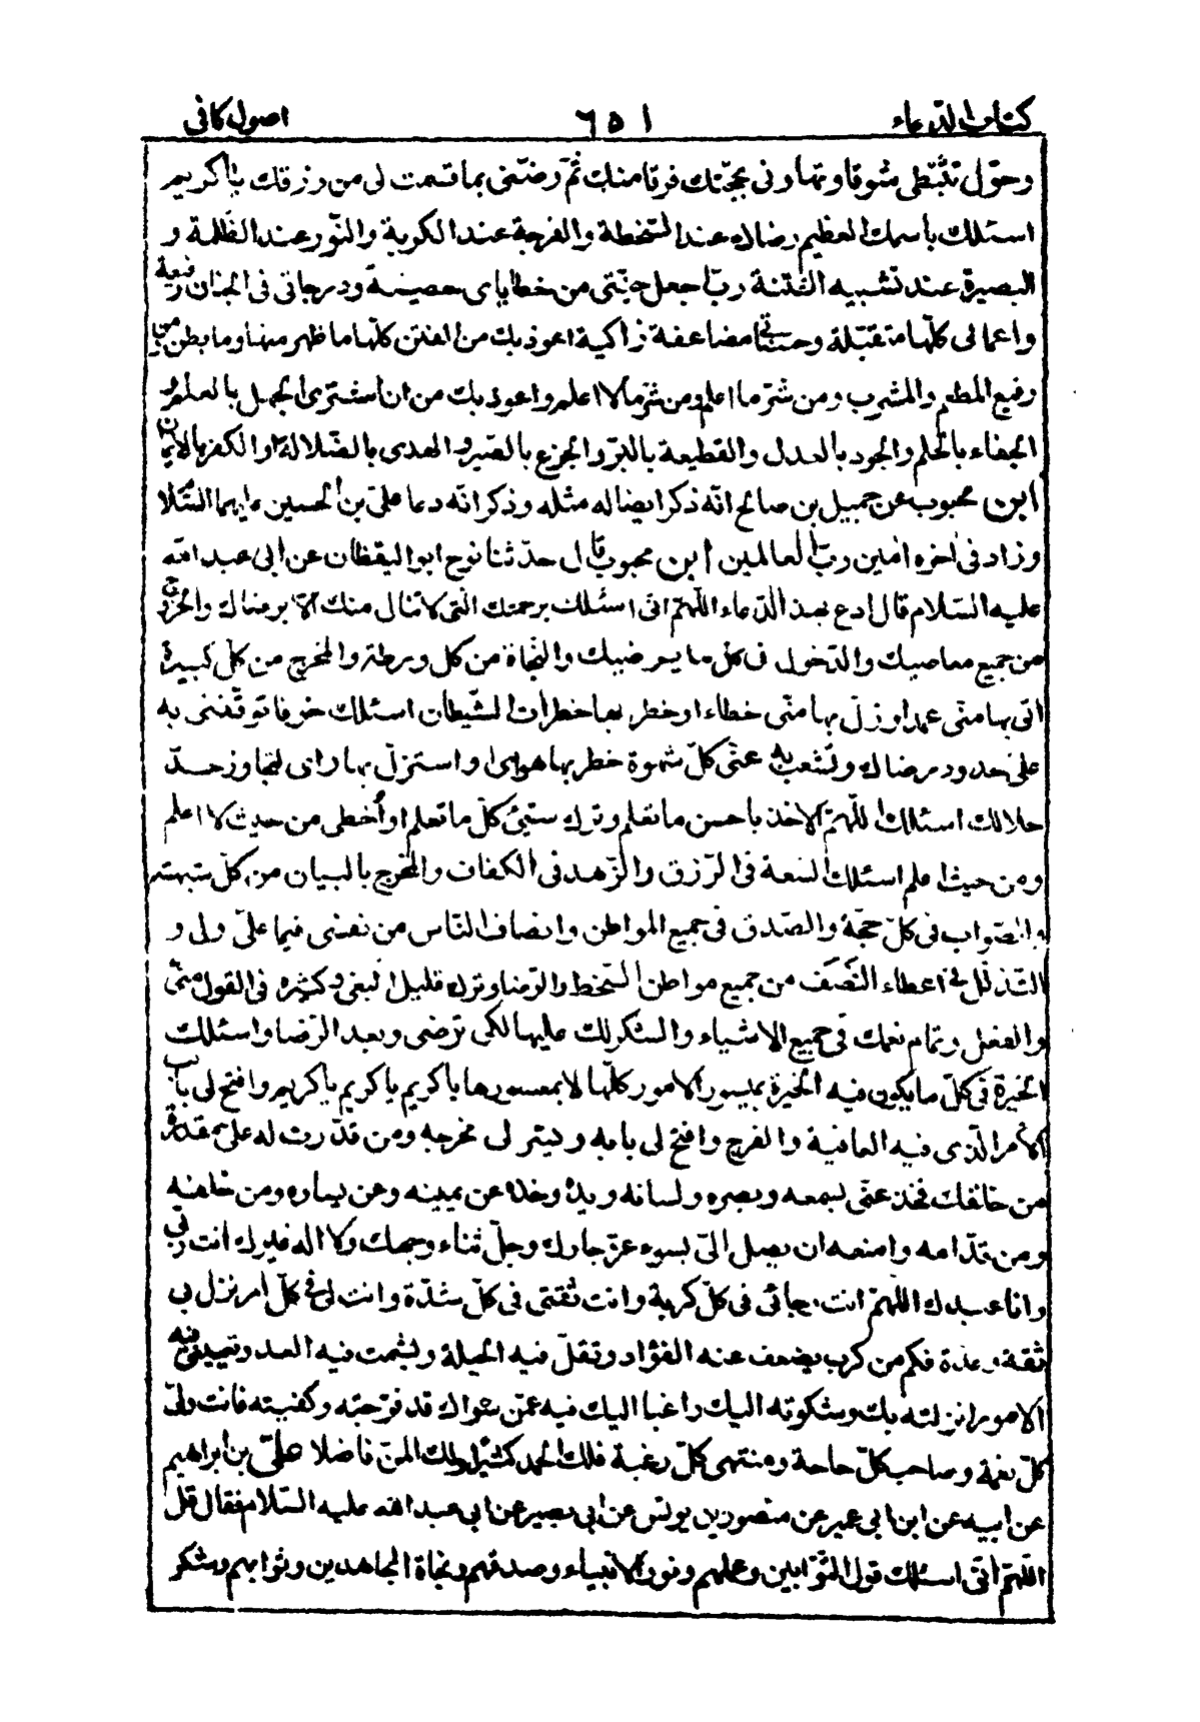 كتاب الدّعاء ٦٥١ اصول كافى
وحوّل تثبّطى شوقا وتهاونى بحجّتك فرقا منك ثمّ رضّنى بما قسمت لى من رزقك يا كريم
اسئلك باسمك العظيم رضاك عند السّخطة والفرجة عند الكربة والنّور عند الظّلمة و
البصيرة عند تشبيه الفتنة ربّ اجعل جنّتى من خطاياى حصينة ودرجاتى فى الجنان رفيعة
واعمالى كلّها متقبّلة وحسناتى مضاعفة زاكية اعوذ بك من الفتن كلّها ما ظهر منها وما بطن منها
رفيع المطعم والمشرب ومن شرّ ما اعلم ومن شرّ ما لا اعلم واعوذ بك من ان اشترى الجهل بالعلم و
الجفاء بالحلم والجور بالعدل والقطيعة بالبرّ والجزع بالصّبر والهدى بالضّلالة او الكفر بالايمان
ابن محبوب عن جميل بن صالح انّه ذكر ايضا له مثله وذكر انّه دعا علىّ بن الحسين عليهما السّلا
وزاد فى اخره امين ربّ العالمين ابن محبوب قال حدّثنا نوح ابو اليقظان عن ابى عبد الله
عليه السّلام قال ادع بهذا الدّعاء اللّهمّ انّى اسئلك برحمتك الّتى لا تنال منك الّا برضاك والخروج
من جميع معاصيك والدّخول فى كلّ ما يرضيك والنّجاة من كلّ ورطة والمخرج من كلّ كبيرة
اتى بها منّى عمد او زلّ بها منّى خطاء او خطر بها خطرات الشّيطان اسئلك خوفا توقفنى به
على حدود رضاك وتشعب به عنّى كلّ شهوة خطر بها هواى واستزلّ بها راى لتجاوز حدّ
حلالك اسئلك اللّهمّ الاخذ باحسن ما تعلم وترك سيّئ كلّ ما تعلم او أخطى من حيث لا اعلم
ومن حيث اعلم اسئلك السّعة فى الرّزق والزّهد فى الكفاف والمخرج بالبيان من كلّ شبهة
والصّواب فى كلّ حجّة والصّدق فى جميع المواطن وانصاف النّاس من نفسى فيما علىّ ولى و
التّذلّل فى اعطاء النّصف من جميع مواطن السّخط والرّضا وترك قليل البغى وكثيره فى القول منّى
والفعل وتمام نعمك فى جميع الاشياء والشّكر لك عليها لكى ترضى وبعد الرّضا واسئلك
الخيرة فى كلّ ما يكون فيه الخيرة بميسور الامور كلّها لا بمعسورها يا كريم يا كريم يا كريم وافتح لى باب
الامر الّذى فيه العافية والفرج وافتح لى بابه ويسّر لى مخرجه ومن قدّرت له علىّ مقدرة
من خلقك فخذ عنّى بسمعه وبصره ولسانه ويده وخذه عن يمينه وعن يساره ومن خلفه
ومن قدّامه وامنعه ان يصل الىّ بسوء عزّ جارك وجلّ ثناء وجهك ولا اله غيرك انت ربّى
وانا عبدك اللّهمّ انت رجائى فى كلّ كربة وانت ثقتى فى كلّ شدّة وانت لى فى كلّ امر نزل بى
ثقة وعدّة فكم من كرب يضعف عنه الفؤاد وتقلّ فيه الحيلة ويشمت فيه العدو وتعيينى فيه
الامور انزلته بك وشكوته اليك راغبا اليك فيه عمّن سواك قد فرّجته وكفيته فانت ولىّ
كلّ نعمة وصاحب كلّ حاجة ومنتهى كلّ رغبة فلك الحمد كثيرا ولك المنّ فاضلا علىّ بن ابراهيم
عن ابيه عن ابن ابى عمير عن منصور بن يونس عن ابى بصير عن ابى عبد الله عليه السّلام فقال قل
اللّهمّ انّى اسئلك قول التّوّابين وعملهم ونور الانبياء وصدقهم ونجاة المجاهدين وثوابهم وشكر